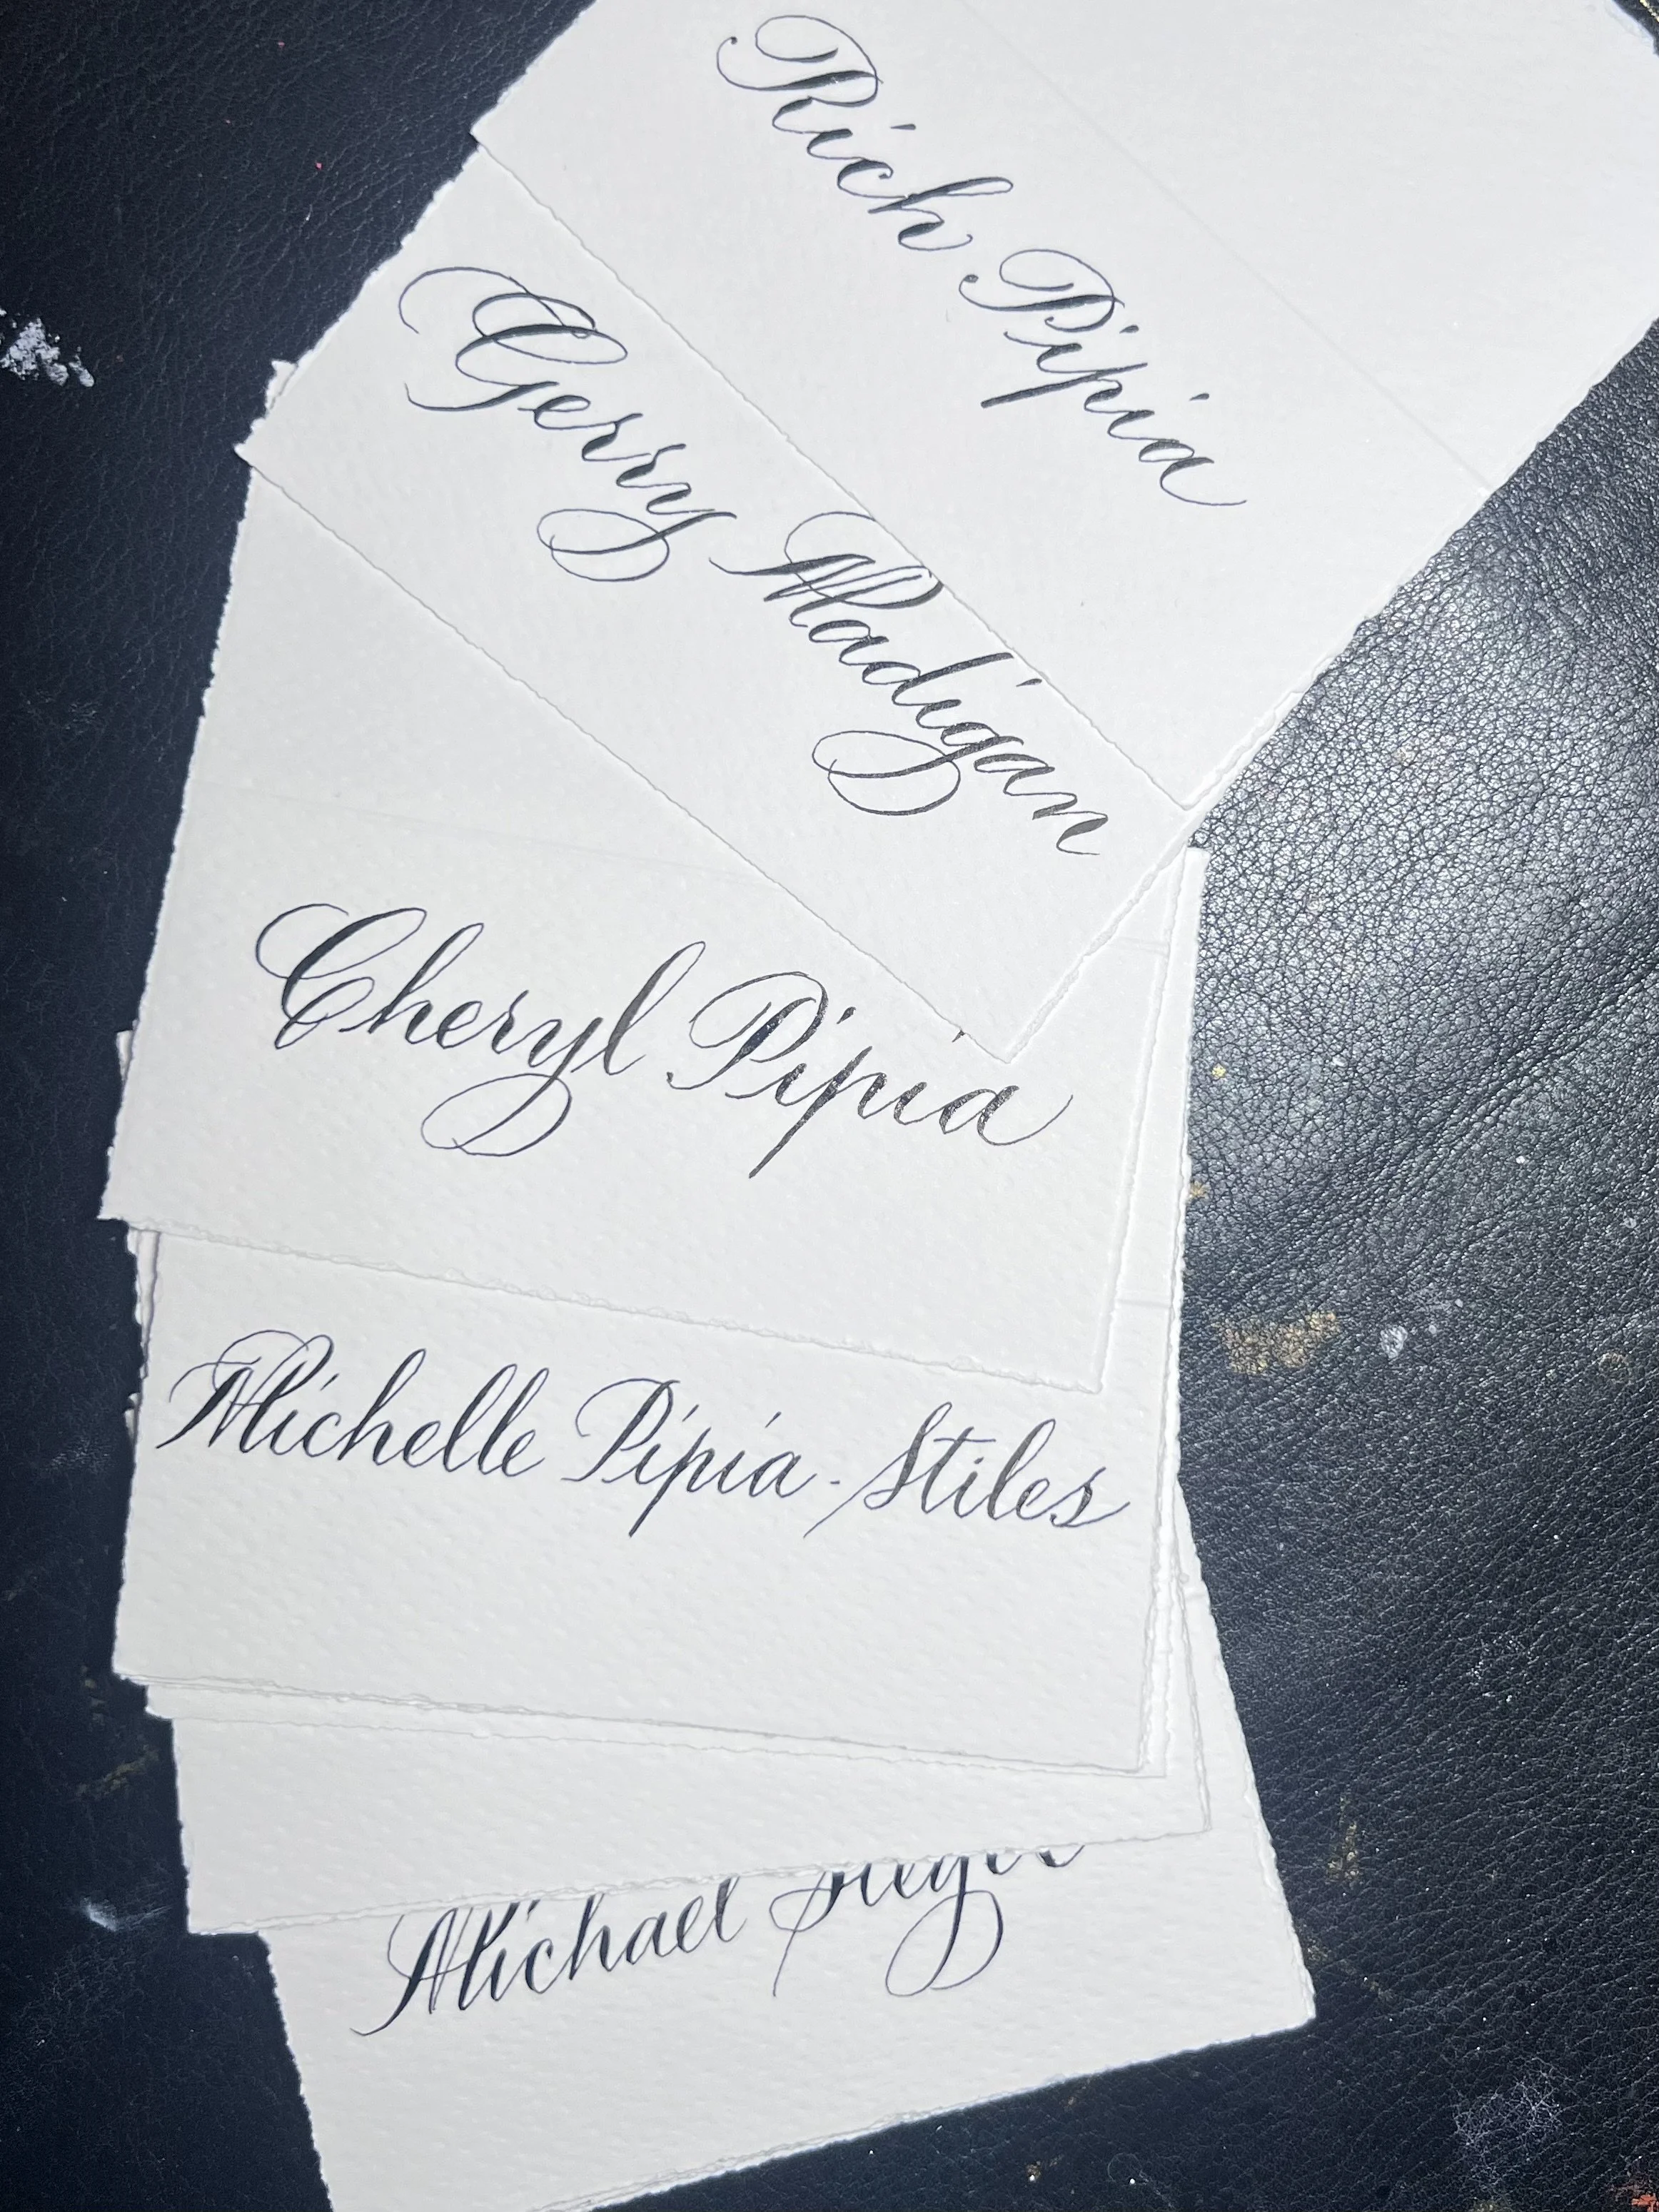 Rich Pipia
Gerry Madigan
Cheryl Pipia
Michelle Pipia-Stiles
Michael